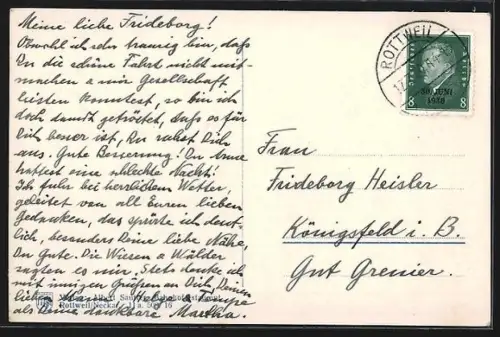 Meine liebe Frideborg!
Obwohl ich sehr traurig bin, dass
Du die schöne Fahrt nicht mit-
machen & mir Gesellschaft
leisten konntest, so bin ich
doch damit getröstet, dass es für
Dich besser ist, Du ruhst Dich
aus. Gute Besserung! Du Arme
hattest eine schlechte Nacht!
Ich fuhr bei herrlichem Wetter,
geleitet von all Euren lieben
Gedanken, das spürte ich deut-
lich, besonders Deine liebe Nähe,
Du Gute. Die Wiesen & Wälder
sagten es mir. Stets denke ich
mit innigen Grüssen an Dich, Deinen
lieben
als Deine dankbare Martha.
Rottweil/Neckar
ROTTWEIL
DEUTSCHES REICH
8 8
30. JUNI
1930
Frau
Frideborg Heisler
Königsfeld i. B.
Gut Grenier.